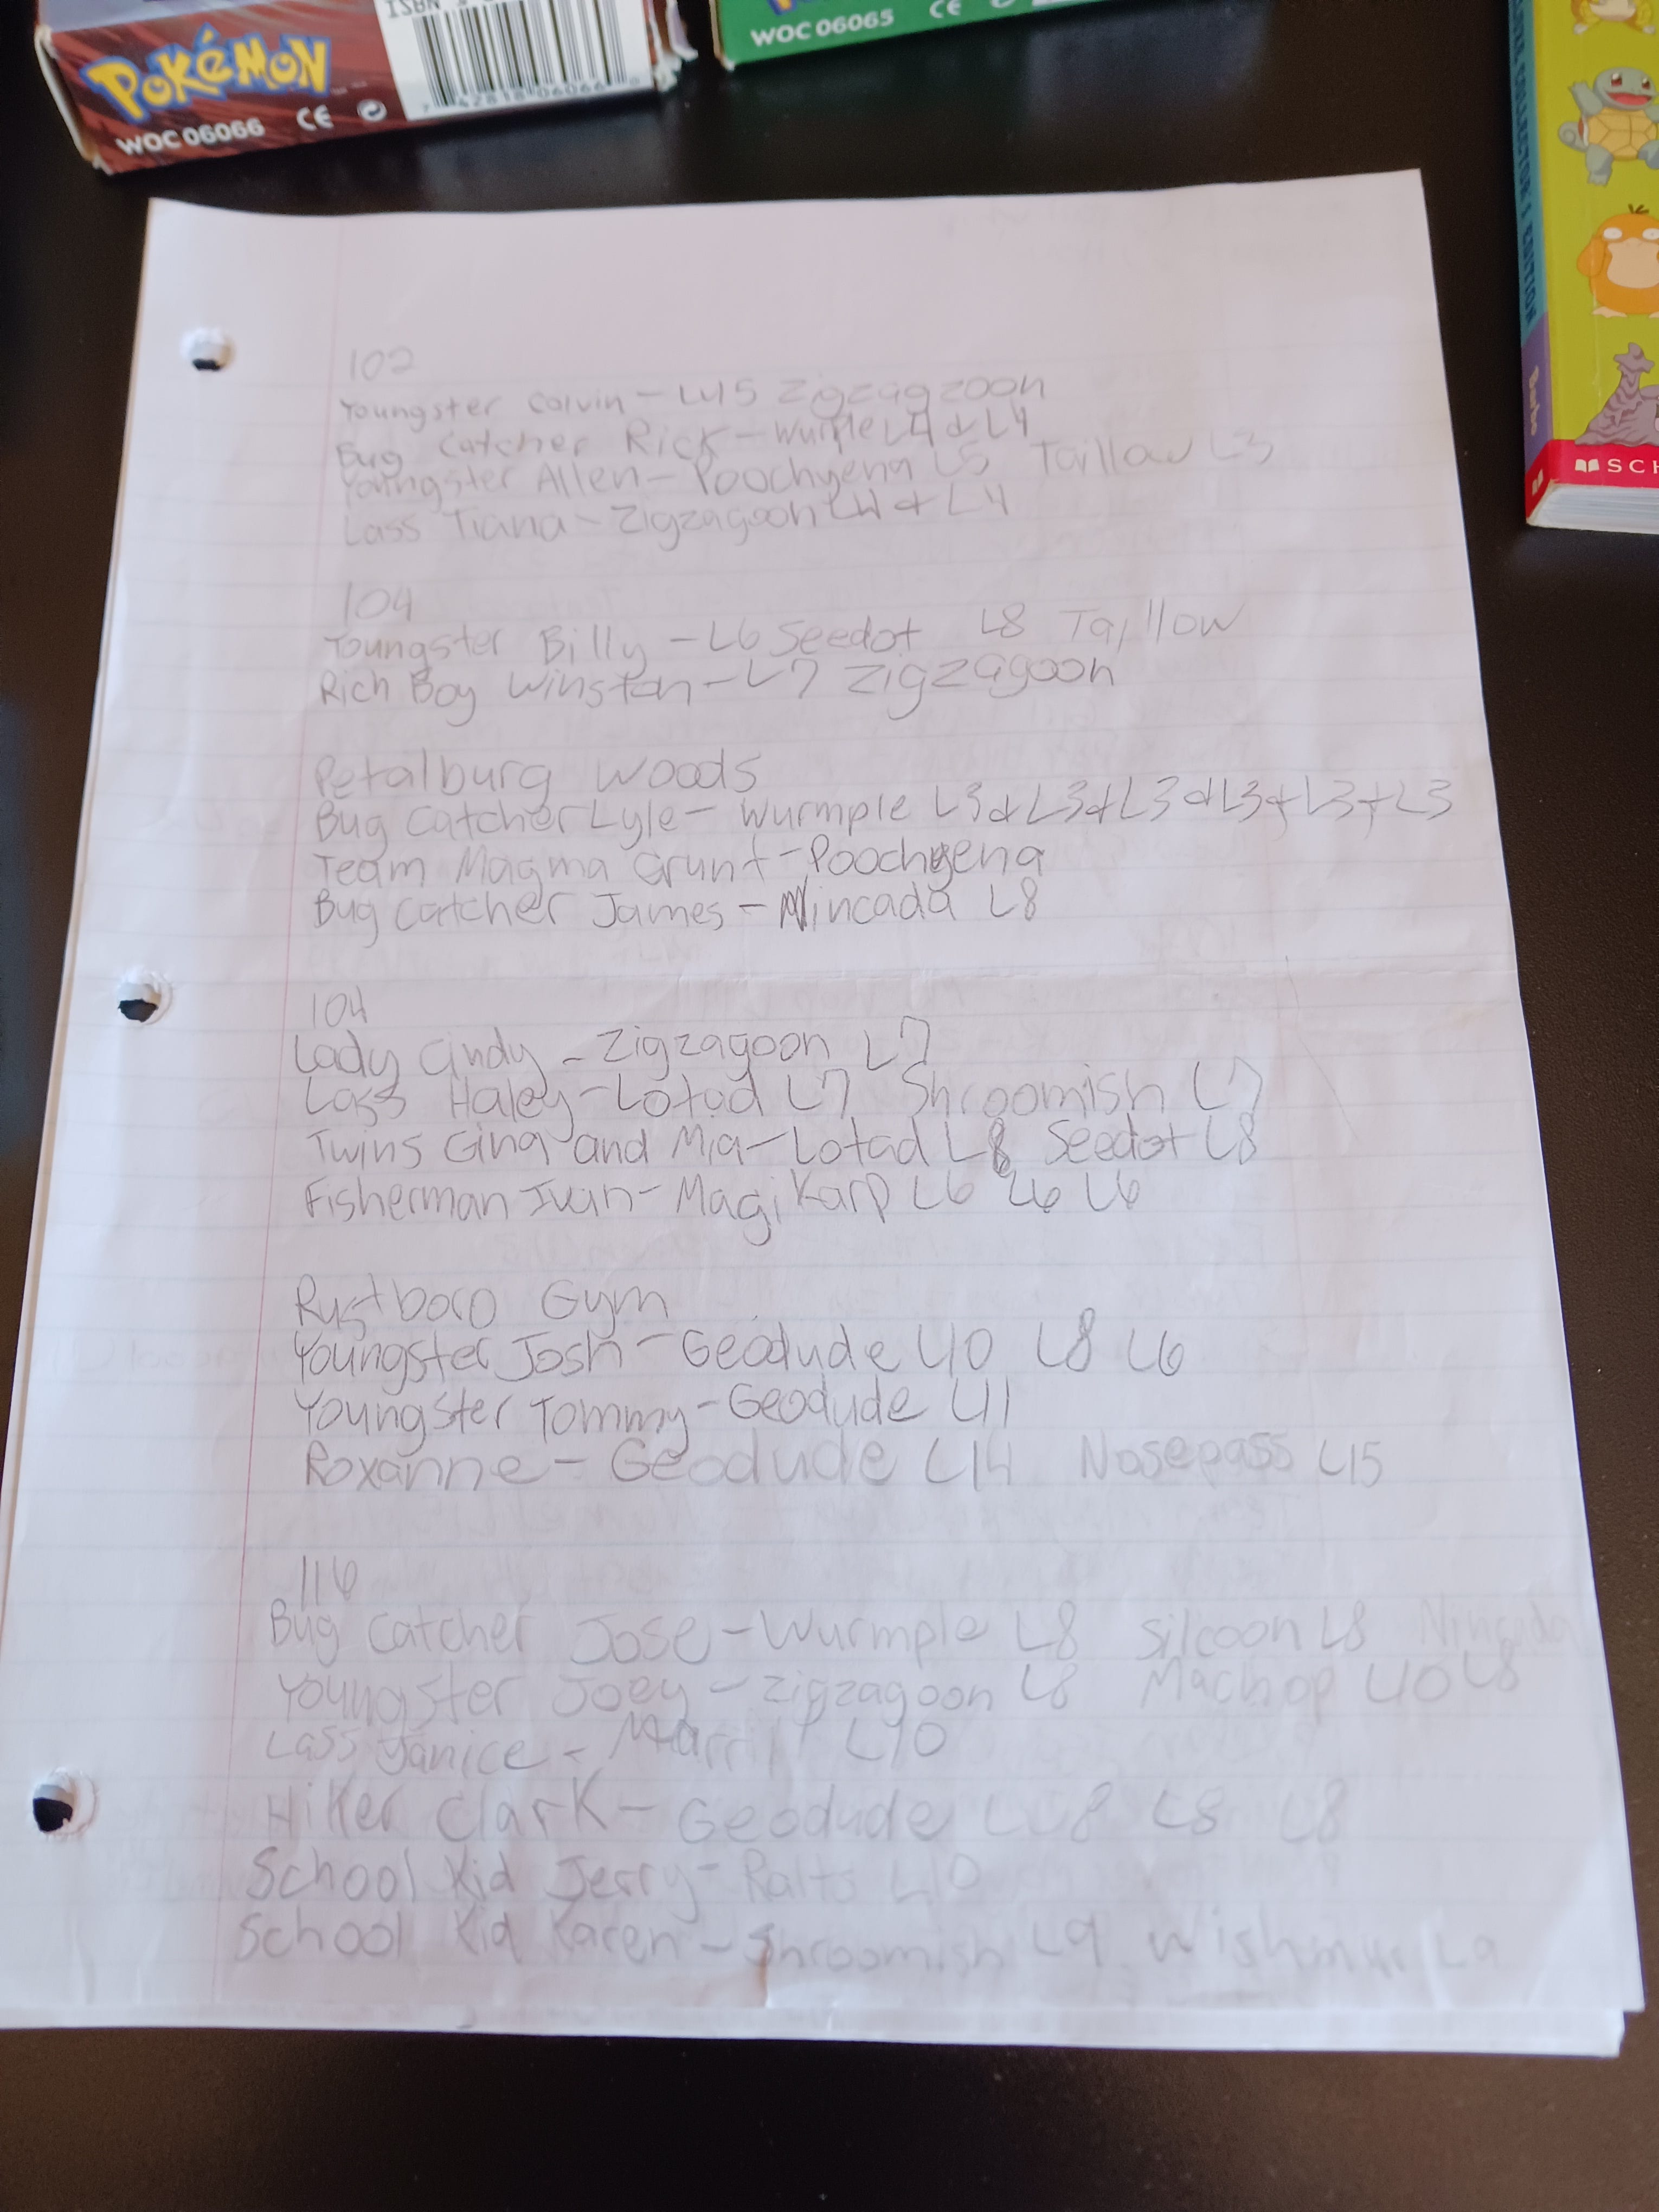 ISBN
POKéMON
WOC 06066 CE
7 42818 06066
WOC 06065 CE
COLLECTOR'S EDITION
SCH
102
Youngster Calvin - LV5 Zigzagzoon
Bug Catcher Rick - Wurmple L4 & L4
Youngster Allen - Poochyena L5 Taillow L3
Lass Tiana - Zigzagoon L4 & L4
104
Youngster Billy - L6 Seedot L8 Taillow
Rich Boy Winston - L7 Zigzagoon
Petalburg Woods
Bug Catcher Lyle - Wurmple L3 & L3 & L3 & L3 & L3 & L3
Team Magma Grunt - Poochyena
Bug Catcher James - Nincada L8
104
Lady Cindy - Zigzagoon L7
Lass Haley - Lotad L7 Shroomish L7
Twins Gina and Mia - Lotad L8 Seedot L8
Fisherman Ivan - Magikarp L6 L6 L6
Rustboro Gym
Youngster Josh - Geodude L10 L8 L6
Youngster Tommy - Geodude L11
Roxanne - Geodude L14 Nosepass L15
116
Bug Catcher Jose - Wurmple L8 Silcoon L8 Nincada
Youngster Joey - Zigzagoon L8 Machop L10 L8
Lass Janice - Marril L10
Hiker Clark - Geodude L8 L8 L8
School Kid Jerry - Ralts L10
School Kid Karen - Shroomish L9 Wishmur L9